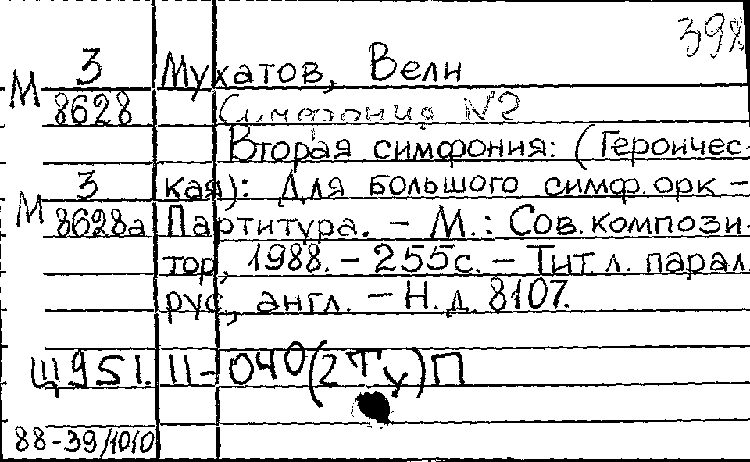 398
М 3 Мухатов, Вели
8628 Симфония №2
Вторая симфония: (Героичес-
М 3 кая): Для большого симф. орк –
8628а Партитура. – М.: Сов. компози-
тор, 1988. – 255с. – Тит. л. парал.
рус., англ. – Н. д. 8107.
Щ951.11-040(2Ту)П
88-39/1010